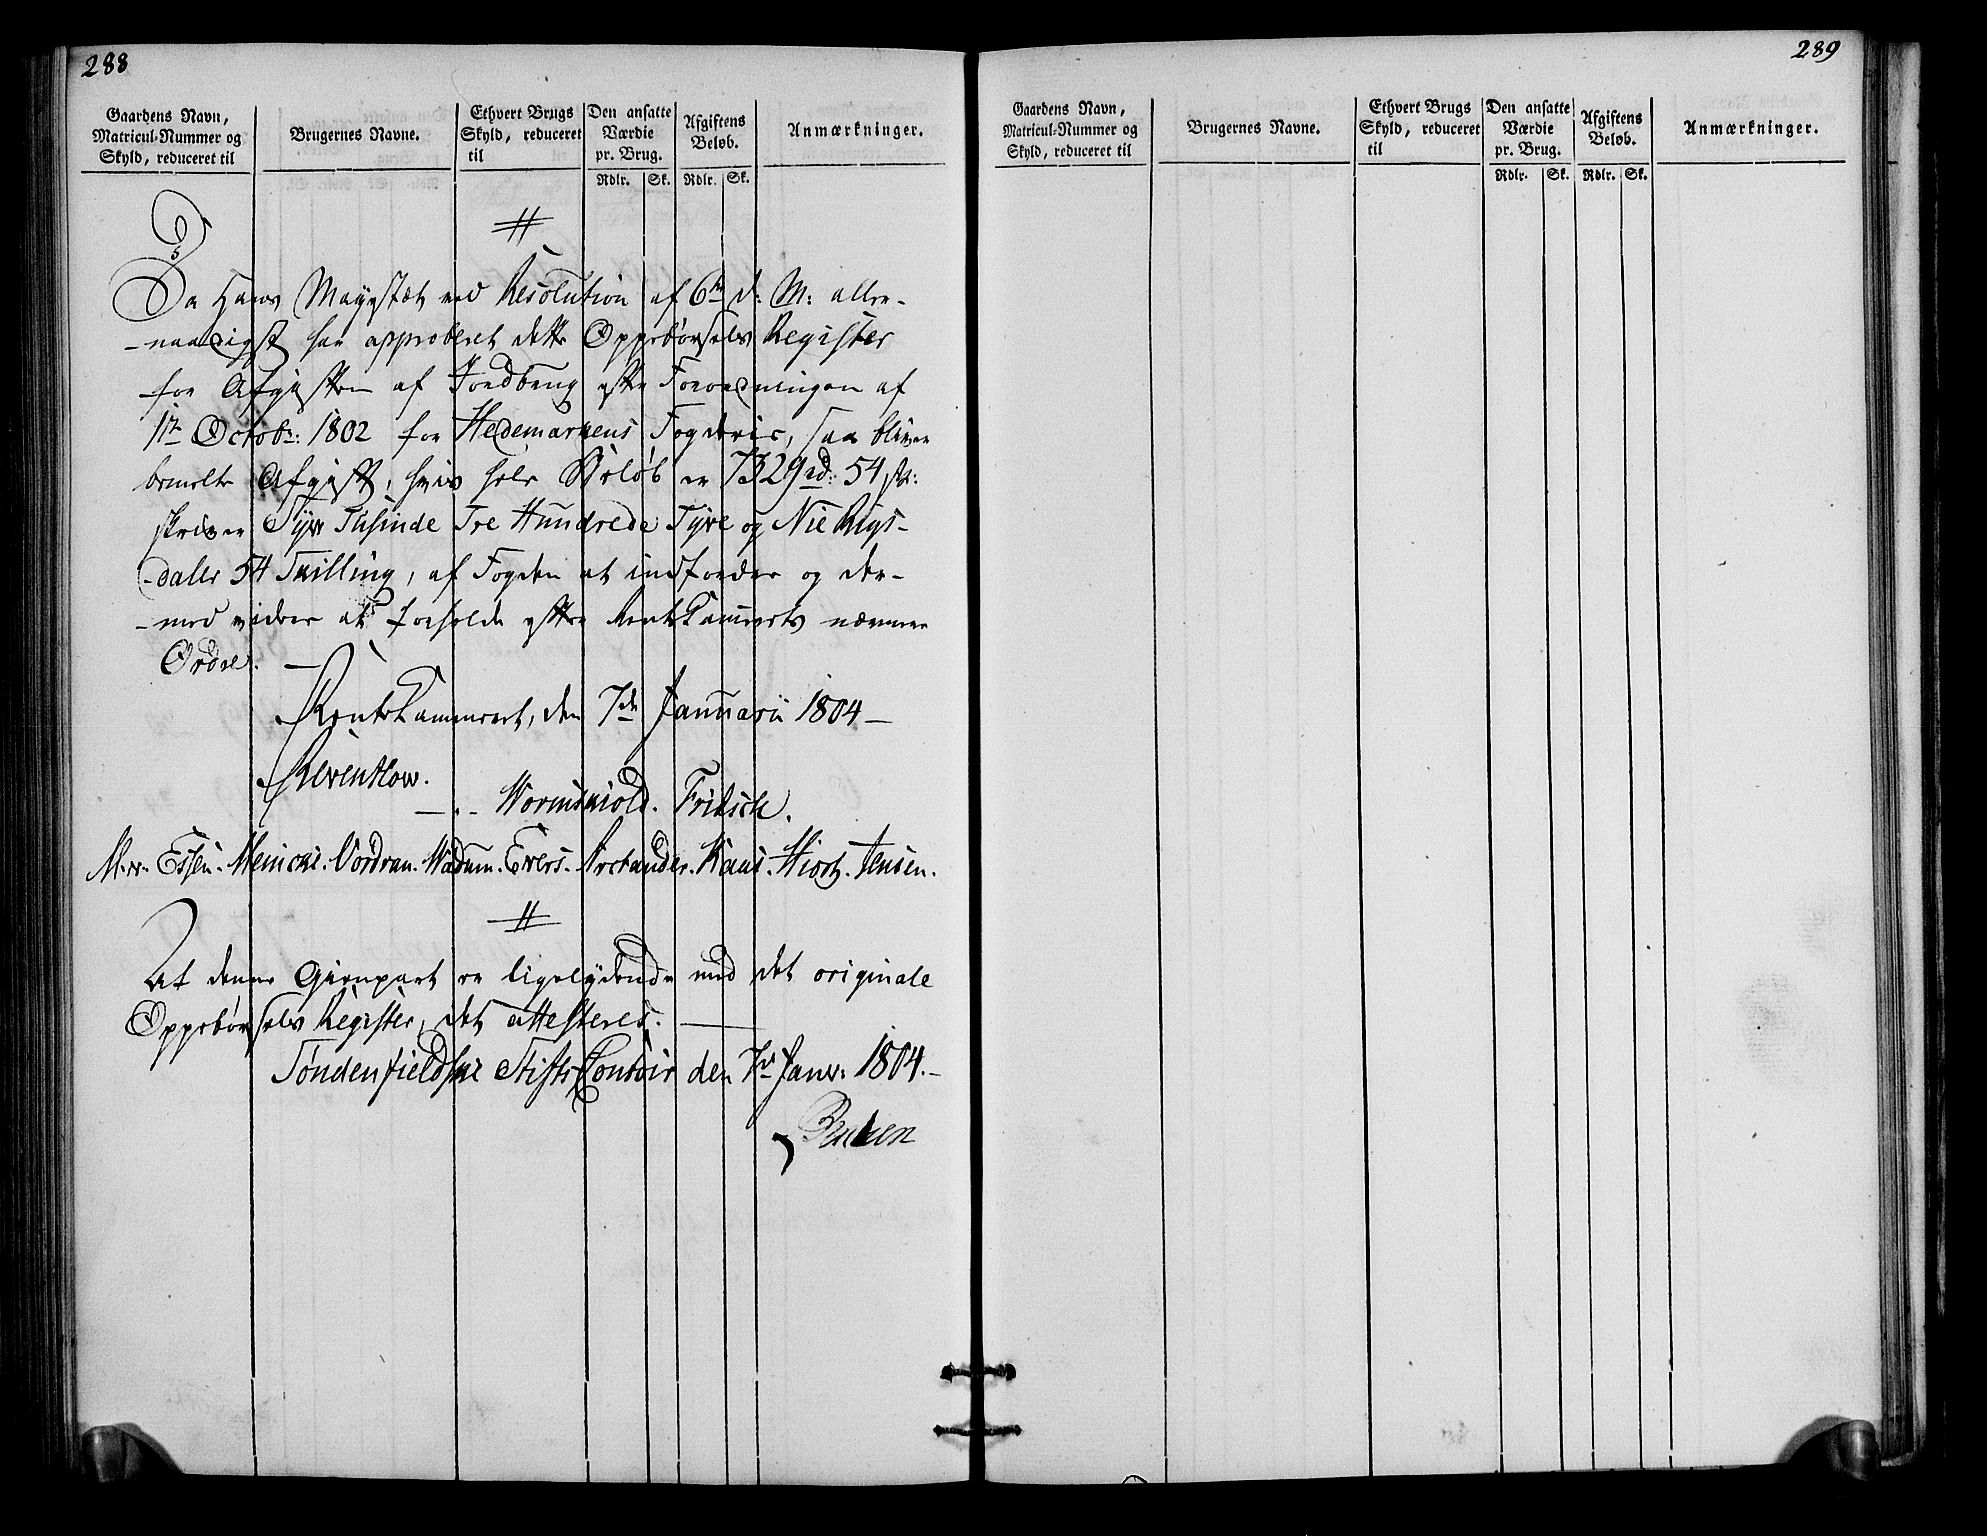 288
Gaardens Navn,
Matricul-Nummer og
Skyld, reduceret til
Brugernes Navne.
Ethvert Brugs
Skyld, reduceret
til
Den ansatte
Værdie
pr. Brug.
Rdlr. Sk.
Afgiftens
Beløb.
Rdlr. Sk.
Anmærkninger.
Da Hans Mayestæt ved Resolution af 6te d: M: aller-
-naadigst har approberet dette Oppebørsels Register
for Afgiften af Jordbrug efter Forordningen af
1te Octobr: 1802 for Hedemarkens Fogderie, saa bliver
bemelte Afgift, hvis hele Beløb er 7329 rd: 54 sk:
skriver Syv Tusinde Tre Hundrede Tyve og Nie Rigs-
-daler 54 Skilling, af Fogden at indfordre og der-
-med videre at forholde efter RenteKammerets nærmere
Ordre. —
RenteKammeret, den 7de Januarii 1804 —
Reventlow.
Wormskiold. Fritsch.
Essen. Meincke. Vordran. Wadum. Evers. Arctander. Kaas. Hiort. Jensen.
At denne Gienpart er ligelydende med det originale
Oppebørsels Register, det attesteres. —
Søndenfieldske Stifts Contoir den 7de Janv: 1804. —
289
Gaardens Navn,
Matricul-Nummer og
Skyld, reduceret til
Brugernes Navne.
Ethvert Brugs
Skyld, reduceret
til
Den ansatte
Værdie
pr. Brug.
Rdlr. Sk.
Afgiftens
Beløb.
Rdlr. Sk.
Anmærkninger.